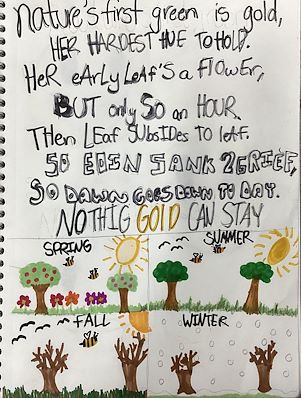 Nature's first green is gold,
HER HARDEST HUE TO HOLD.
HeR eARLy LeAf'S a FlOWeR,
BUT only SO an HOUR.
THen LEaf SUBSIDES TO leAf.
SO EDEN SANK 2 GRIEF,
SO DAWN GOES DOWN TO DAY.
NOTHIG GOLD CAN STAY
SPRING
SUMMER
FALL
WINTER